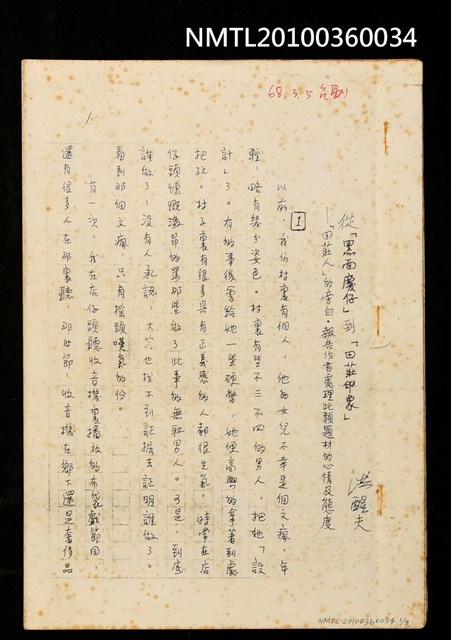 NMTL20100360034
68.3.5 台副
1
從「黑面慶仔」到「田莊印象」
—「田莊人」的旁白・報告作者處理此類題材的心情及態度
洪醒夫
1
以前，我份村裏有個人，他的女兒不幸是個文瘋，年
輕，略有幾分姿色。村裏有些不三不四的男人，把她「設
計」了。有的事後會給她一些硬幣，她便高興的拿著到處
把玩。村子裏有很多具有正義感的人都很生氣，時常在店
仔頭慷慨激昂的罵那些做了此事的無恥男人。可是，到底
誰做了，沒有人承認，大家也找不到証據去証明誰做了。
看到那個文瘋，只有搖頭嘆氣的份。
有一次，我在店仔頭聽收音機裏播放的布袋戲節目，
還有很多人在那裏聽，那時節，收音機在鄉下還是奢侈品
NMTL20100360034 1/8